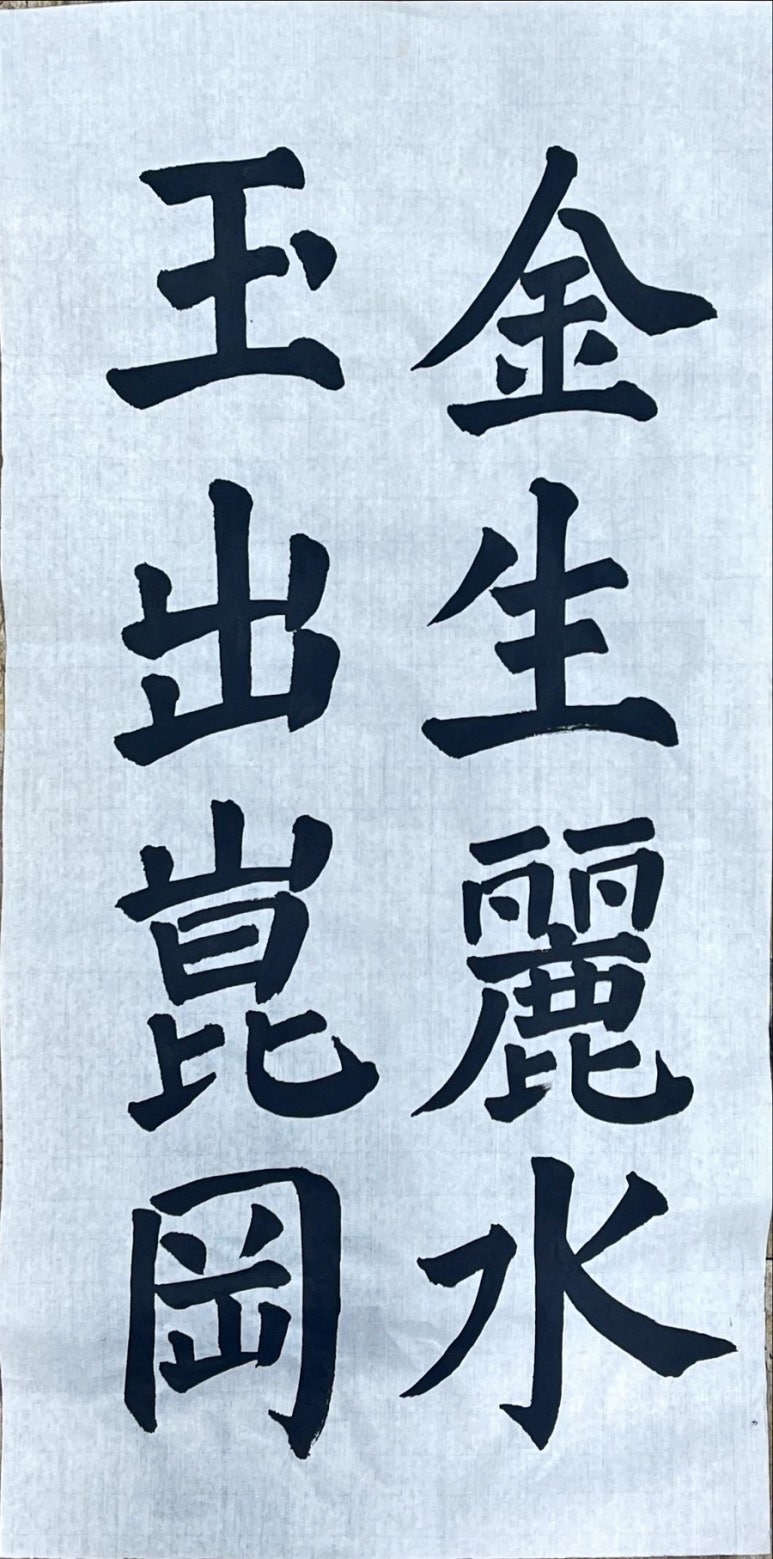 金生麗水
玉出崑岡